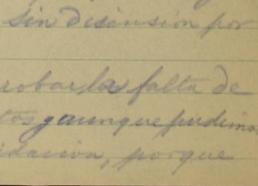 sin discusión por
robar la falta de
tos y aunque pudimos
porque